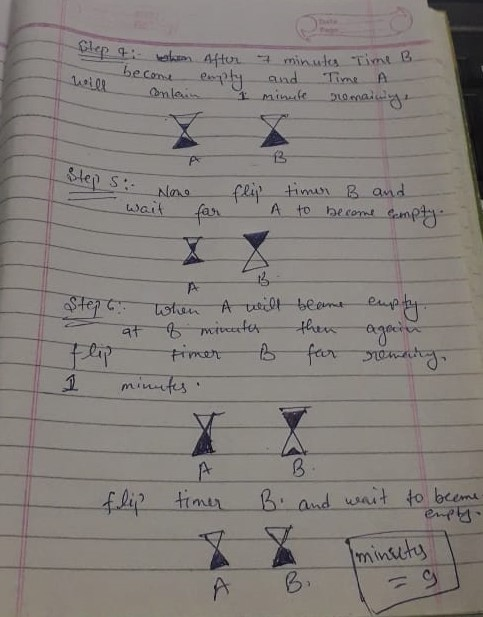 Step 4:- When After 7 minutes Time B
become empty and Time A
will contain 1 minute remaining.
A B
Step 5:- Now flip timer B and
wait for A to become empty.
A B
Step 6:- When A will became empty.
at 8 minutes then again
flip timer B for remaing.
1 minutes.
A B.
flip timer B. and wait to become
empty.
A B.
minutes
= 9